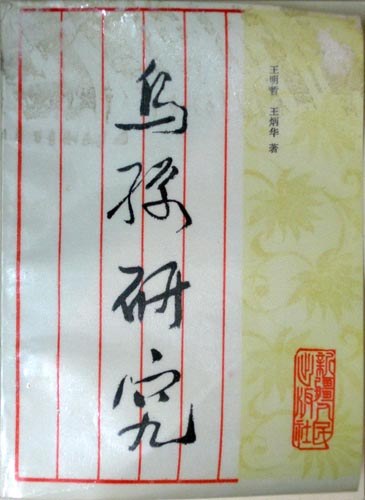 乌孫研究
王明哲 王炳华 著
新疆人民
出版社